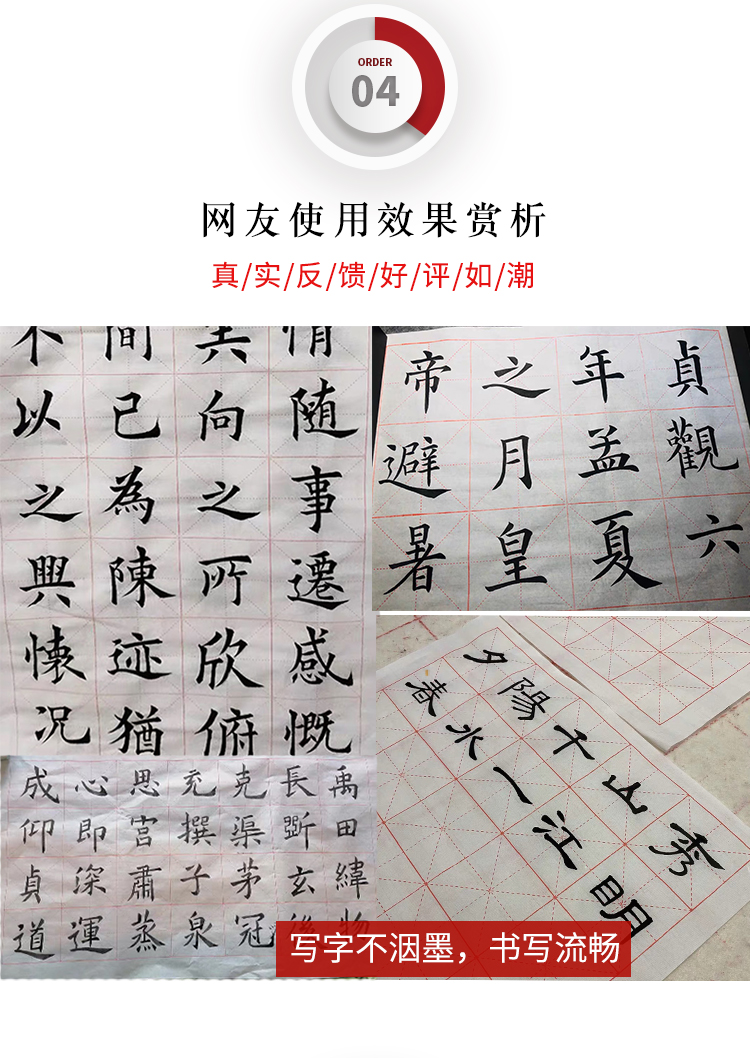 ORDER
04
网友使用效果赏析
真/实/反/馈/好/评/如/潮
情随事遷感慨
矣向之所欣俯
間已為陳迹猶
不以之興懐況
貞觀六
年孟夏
之月皇
帝避暑
夕陽千山秀
春水一江明
禹田緯物
長斷玄
克渠茅冠
充撰子泉
思宮肅蒸
心即深運
成仰貞道
写字不洇墨，书写流畅